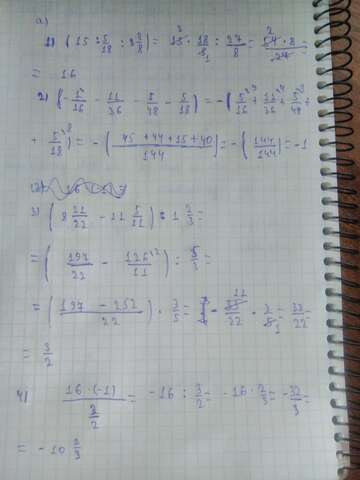 а)
1) (15 : 5/18 : 3 3/8) = 15 · 18/5 : 27/8 = 54 · 8/27 =
= 16
2) (- 5/16 - 11/36 - 5/48 - 5/18) = - (5/16 + 11/36 + 5/48 +
+ 5/18) = - (45 + 44 + 15 + 40/144) = - (144/144) = -1
3) (8 21/22 - 11 5/11) : 1 2/3 =
= (197/22 - 126/11) : 5/3 =
= (197 - 252/22) · 3/5 = - 55/22 · 3/5 = 33/22 =
= 3/2
4) 16 · (-1)/3/2 = -16 : 3/2 = -16 · 2/3 = -32/3 =
= -10 2/3